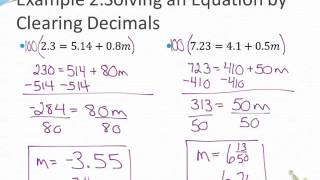 Example 2:Solving an Equation by
Clearing Decimals
100(2.3 = 5.14 + 0.8m)
230 = 514 + 80m
-514 -514
-284 = 80m
80 80
m = -3.55
100(7.23 = 4.1 + 0.5m)
723 = 410 + 50m
-410 -410
313 = 50m
50 50
m = 6 13/50